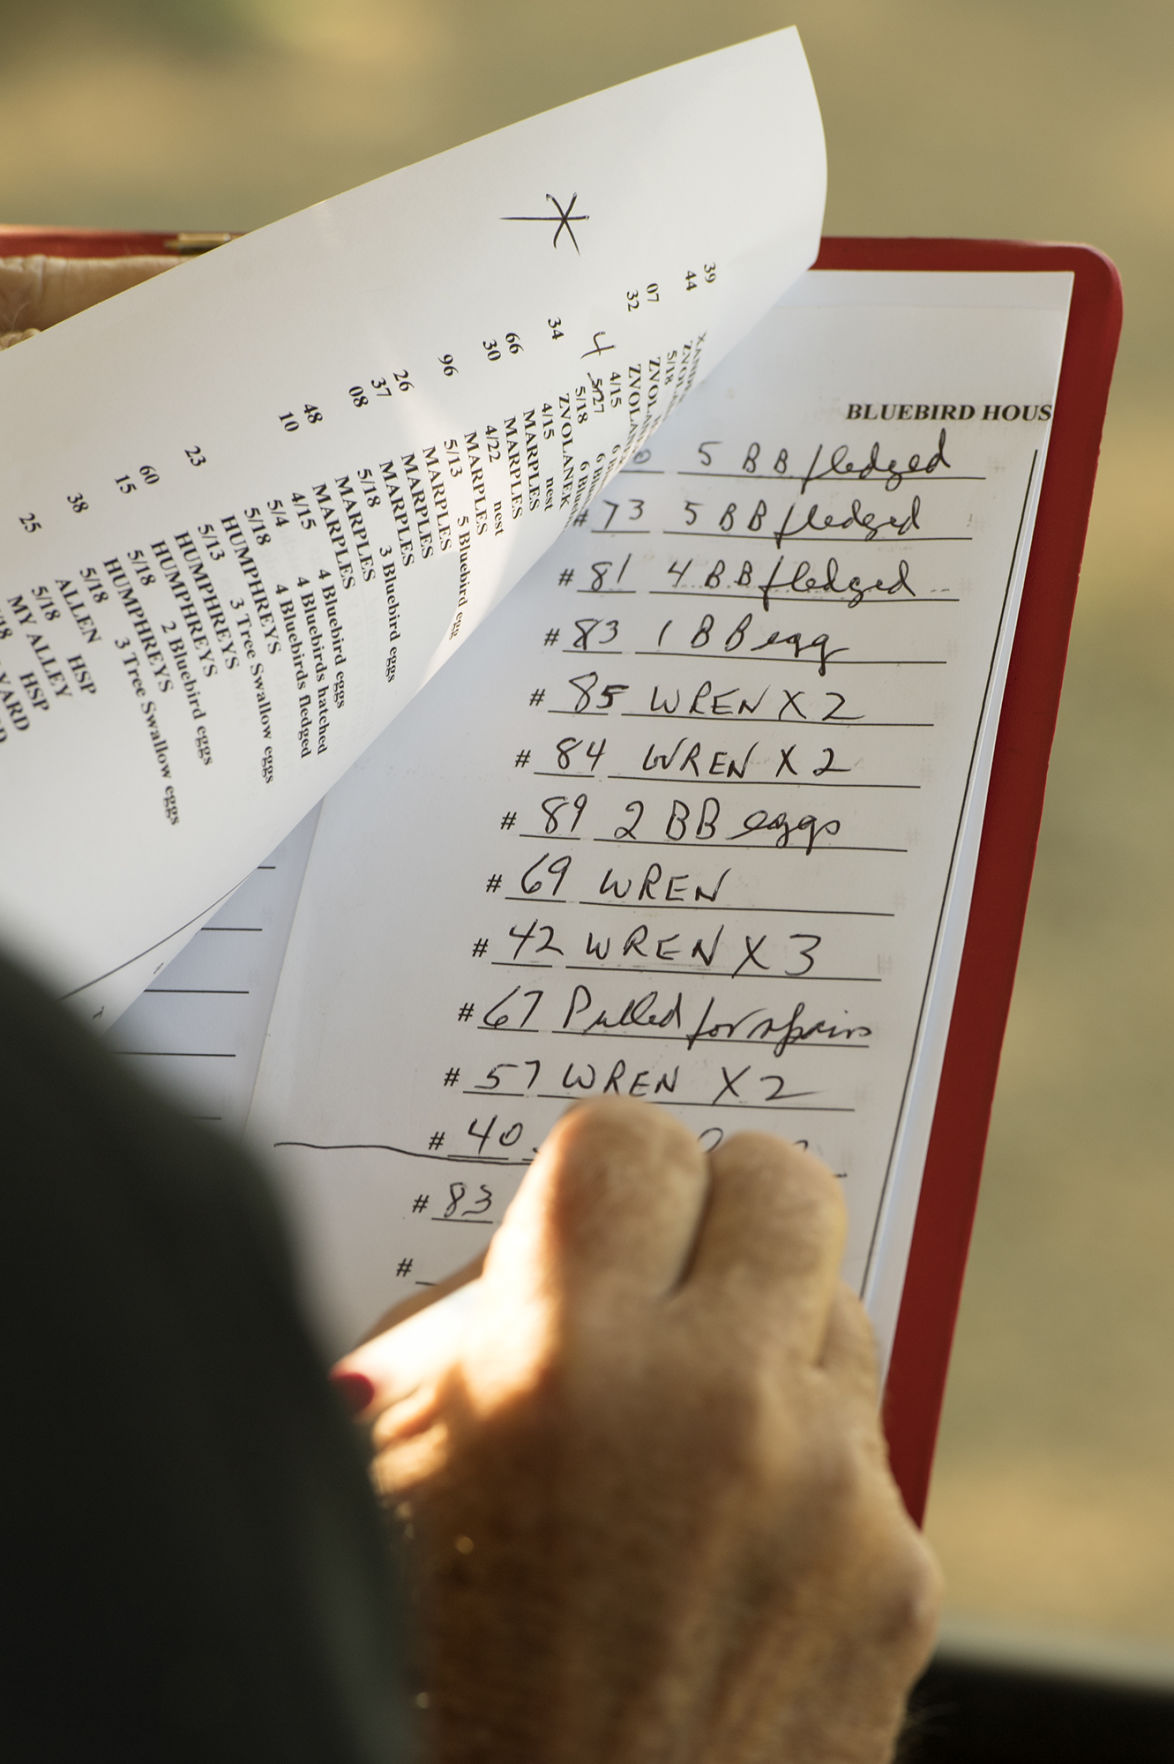 *
39
44
07
32
4
34
66
30
96
26
37
08
48
10
23
60
15
38
25
5/18
4/15
5/27
5/18
ZVOLANEK
4/15 nest
MARPLES
MARPLES
4/22 nest
MARPLES
5/13 5 Bluebird egg
MARPLES
MARPLES
MARPLES
5/18 3 Bluebird eggs
MARPLES
MARPLES
4/15 4 Bluebird eggs
5/4 4 Bluebirds hatched
5/18 4 Bluebirds fledged
HUMPHREYS
5/13 3 Tree Swallow eggs
HUMPHREYS
HUMPHREYS
5/18 2 Bluebird eggs
HUMPHREYS
5/18 3 Tree Swallow eggs
ALLEN HSP
5/18
MY ALLEY HSP
BLUEBIRD HOUS
5 BB fledged
# 73 5 BB fledged
# 81 4 BB fledged
# 83 1 BB egg
# 85 WREN X 2
# 84 WREN X 2
# 89 2 BB eggs
# 69 WREN
# 42 WREN X 3
# 67 Pulled for repairs
# 57 WREN X 2
# 40
# 83
#